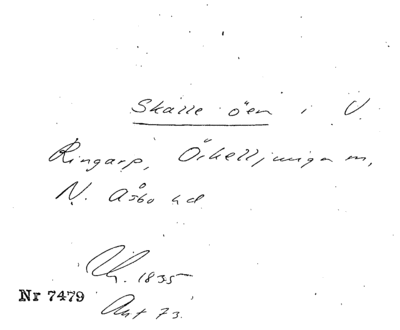 Skälle öen i V.
Ringarp, Örkelljunga sn,
N. Åsbo hd
1835
Nr 7479
Ant 73.